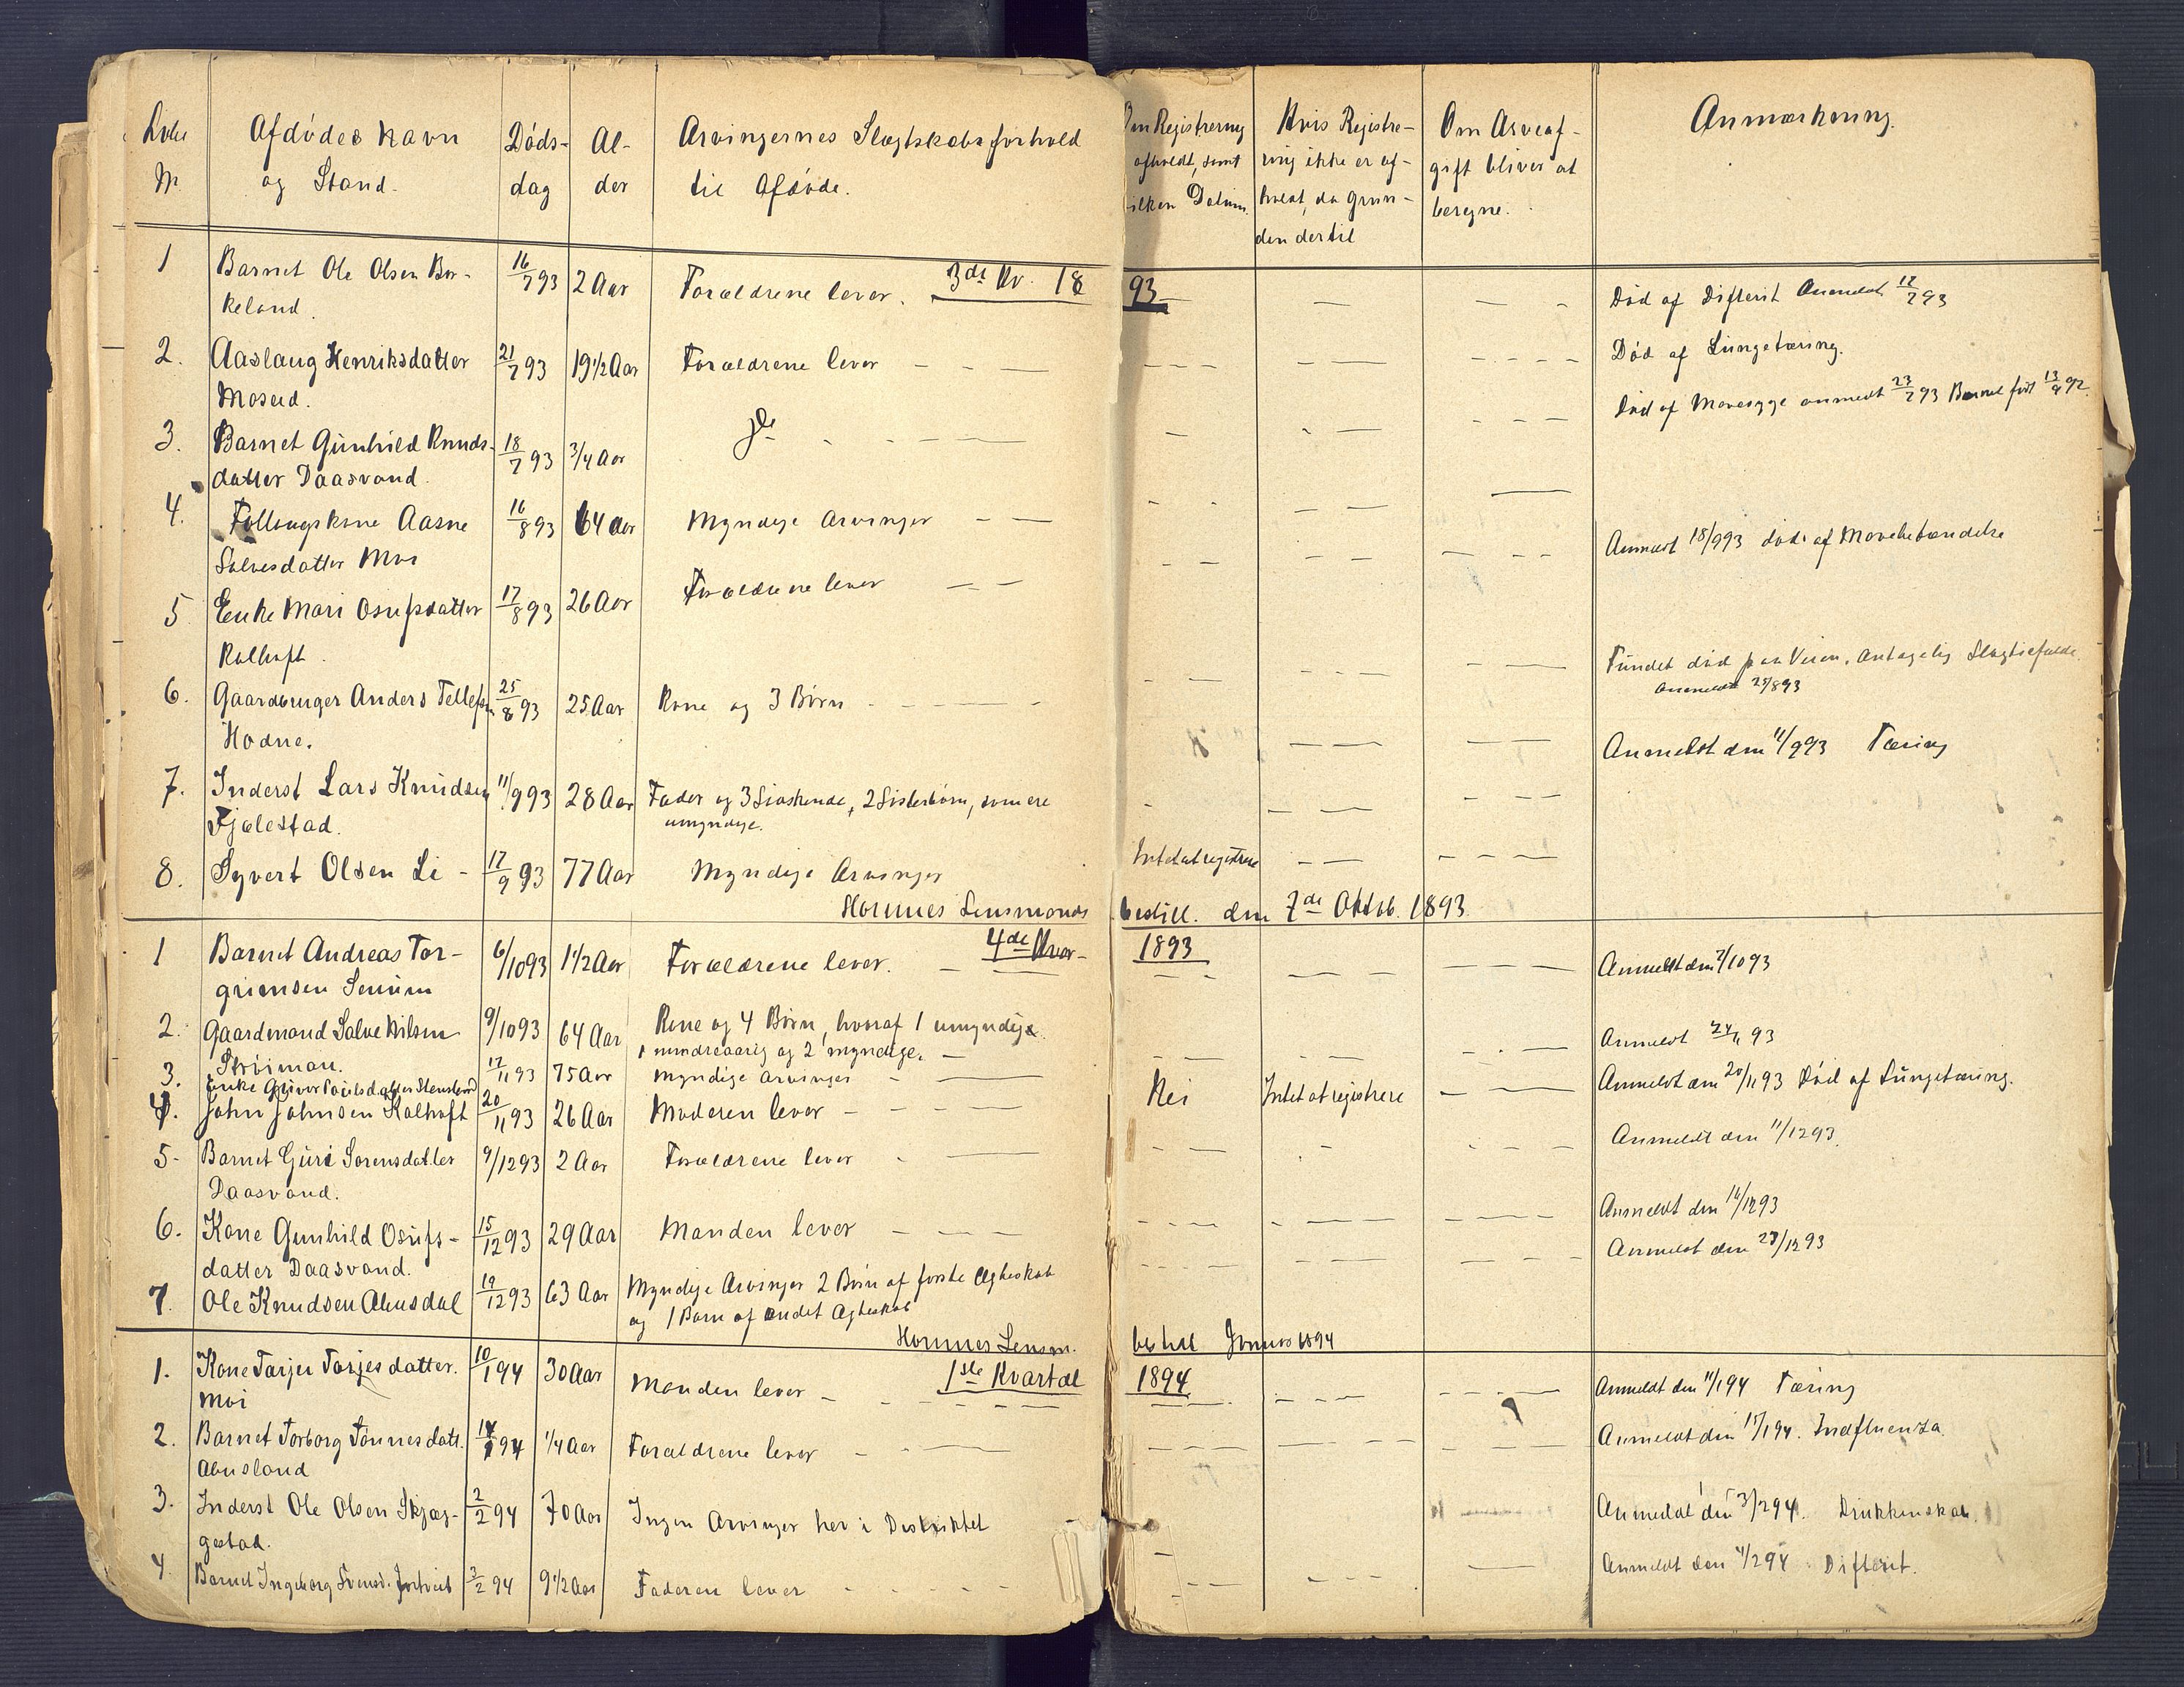 Afdødes Navn
og Stand.
Døds-
dag
Al-
der
Arvingernes Slægtskabsforhold
til Afdøde.
Om Registrering
afholdt, samt
Datum.
Hvis Registre-
ring ikke er af-
holdt, da Grun-
den dertil
Om Arveaf-
gift bliver at
beregne.
Anmærkning.
3de Kv. 1893
1 Barnet Ole Olsen Bor- 16/7 93 2 Aar Forældrene lever. Død af Difterit Anmeldt 17/7 93
keland.
2. Aaslaug Henriksdatter 21/7 93 19 1/2 Aar Forældrene lever Død af Lungetæring.
Moseid.
3. Barnet Gunhild Knuds- 18/7 93 3/4 Aar Do Død af Mavesyge anmeldt 23/7 93 Barnet født 13/9 92.
datter Daasvand.
4. Føllaugskone Aasne 16/8 93 64 Aar Myndige Arvinger Anmeldt 18/9 93 død af Mavebetændelse
Salvesdatter Moi
5 Enke Mari Osufsdatter 17/8 93 26 Aar Forældrene lever
Kalhoft.
6. Gaardbruger Anders Tellefsen 25/8 93 25 Aar Kone og 3 Børn Fundet død paa Veien, Antagelig Slagtilfælde.
Hodne. Anmeldt 28/8 93
7. Inderst Lars Knudsen 11/9 93 28 Aar Fader og 3 Sødskende, 2 Sisterbørn, som ere Anmeldt den 11/9 93 Tæring
Fjælestad. umyndige.
8. Syvert Olsen Li - 17/9 93 77 Aar Myndige Arvinger Intet at registrere
Hornnes Lensmands bestill. den 7de Oktob. 1893.
4de Kvar- 1893
1 Barnet Andreas Tor- 6/10 93 1 1/2 Aar Forældrene lever. Anmeldt den 7/10 93
grimsen Senum
2. Gaardmand Salve Nilsen 9/10 93 64 Aar Kone og 4 Børn, hvoraf 1 umyndige Anmeldt 24/11 93
Strømau. 1 mindreaarig og 2 myndige.
3. Enke Guror Paulsdatter Stensland 17/11 93 75 Aar Myndige Arvinger
4. John Johnsen Kalhoft 20/11 93 26 Aar Moderen lever Nei Intet at registrere Anmeldt den 20/11 93 Død af Lungetæring.
5. Barnet Guri Sorensdatter 9/12 93 2 Aar Forældrene lever Anmeldt den 11/12 93.
Daasvand.
6. Kone Gunhild Osufs- 15/12 93 29 Aar Manden lever Anmeldt den 16/12 93
datter Daasvand.
7. Ole Knudsen Abusdal 19/12 93 63 Aar Myndige Arvinger 2 Børn af første Ægteskab Anmeldt den 23/12 93
og 1 Barn af andet Ægteskab
Hornnes Lensm. bestill Januar 1894
1ste Kvartal 1894
1. Kone Tarjer Tarjesdatter. 10/1 94 30 Aar Manden lever Anmeldt den 11/1 94 Tæring
Moi
2. Barnet Torborg Tønnesdatt. 94 1/4 Aar Forældrene lever Anmeldt den 17/1 94. Indfluenza.
Abusland
3. Inderst Ole Olsen Skjæg- 2/2 94 70 Aar Ingen Arvinger her i Distriktet Anmeldt den 3/2 94. Drukkenskab.
gestad.
4. Barnet Ingeborg Svensd. 3/2 94 9 1/2 Aar Faderen lever Anmeldt den 4/2 94. Difterit.